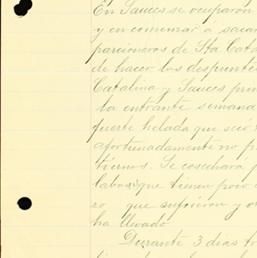 En Sauces se ocuparon
y en comenzar a sacar
parcioneros de Sta Cata
de hacer los despunte
Catalina y Sauces prin
la entrante semana
fuerte helada que
afortunadamente no p
tiernos. Se cosechará
labas que tienen poco
ro que sufrieron y
ha llevado
Durante 3 dias to